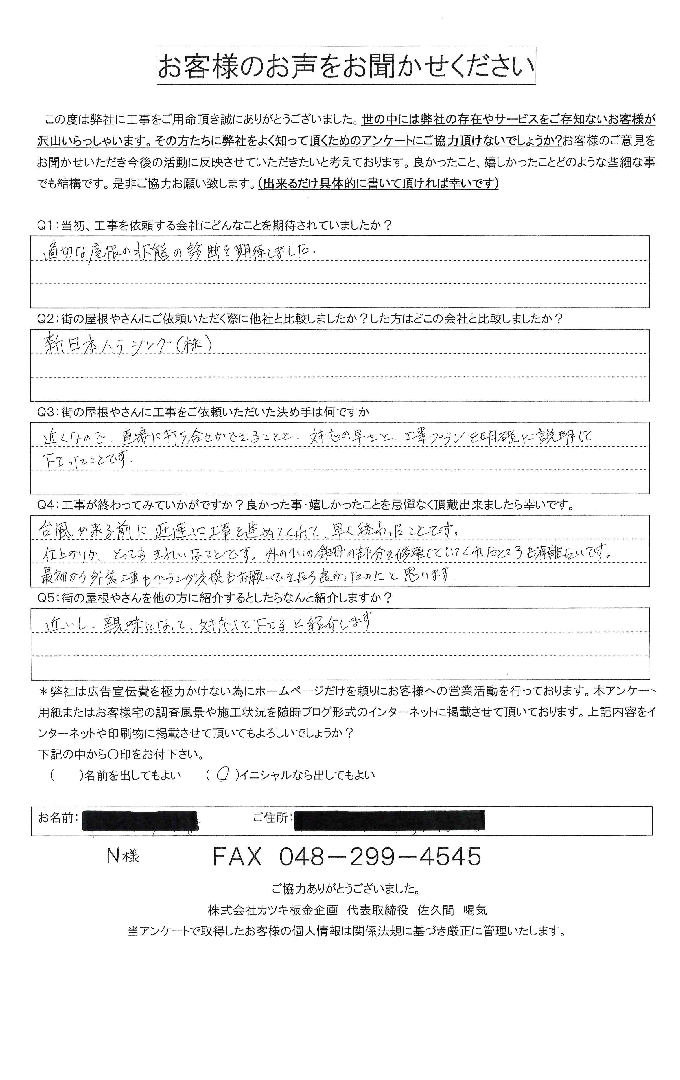 お客様のお声をお聞かせください
この度は弊社に工事をご用命頂き誠にありがとうございました。世の中には弊社の存在やサービスをご存知ないお客様が
沢山いらっしゃいます。その方たちに弊社をよく知って頂くためのアンケートにご協力頂けないでしょうか?お客様のご意見を
お聞かせいただき今後の活動に反映させていただきたいと考えております。良かったこと、嬉しかったことどのような些細な事
でも結構です。是非ご協力お願い致します。(出来るだけ具体的に書いて頂ければ幸いです)
Q1:当初、工事を依頼する会社にどんなことを期待されていましたか?
適切な屋根の状態の診断を期待しました。
Q2:街の屋根やさんにご依頼いただく際に他社と比較しましたか?した方はどこの会社と比較しましたか?
新日本ハウジング(株)
Q3:街の屋根やさんに工事をご依頼いただいた決め手は何ですか
近くなので、直接に打ち合せができることと、対応の早さと、工事プランを明確に説明して
下さったことです。
Q4:工事が終わってみていかがですか?良かった事・嬉しかったことを忌憚なく頂戴出来ましたら幸いです。
台風が来る前に迅速に工事を進めてくれて、早く終わったことです。
仕上がりが、とってもきれいなことです。外の小いの部分を修理していてくれたところも有難いです。
最初から外後工事もベランダ交換もお願いしてたら良かったのにと思います
Q5:街の屋根やさんを他の方に紹介するとしたらなんと紹介しますか?
近いし、親味になって、対応して下さると紹介します
*弊社は広告宣伝費を極力かけない為にホームページだけを頼りにお客様への営業活動を行っております。本アンケート
用紙またはお客様宅の調査風景や施工状況を随時ブログ形式のインターネットに掲載させて頂いております。上記内容をイ
ンターネットや印刷物に掲載させて頂いてもよろしいでしょうか?
下記の中から○印をお付下さい。
( )名前を出してもよい (○)イニシャルなら出してもよい
お名前: ご住所:
N様 FAX 048-299-4545
ご協力ありがとうございました。
株式会社カツキ板金企画 代表取締役 佐久間 暢気
当アンケートで取得したお客様の個人情報は関係法規に基づき厳正に管理いたします。